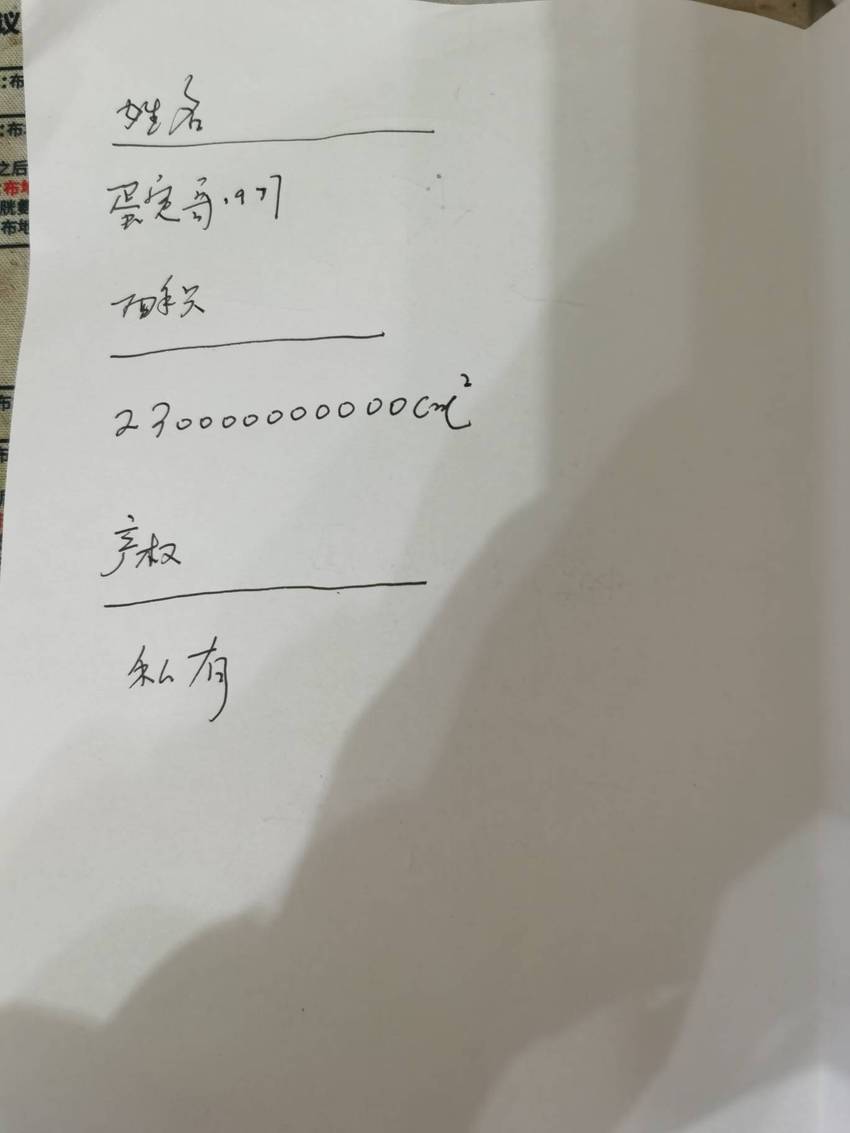 议
:布
:布
之后
布地
布地
布
姓名
蛋宽哥.977
面积
230000000000cm²
产权
私有